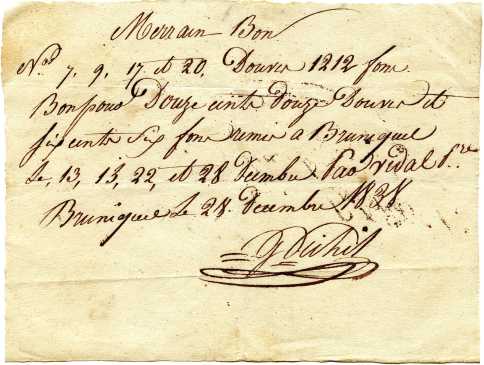 Merrain Bon
Nos 7, 9, 17 et 20, Douves 1212 fons
Bon pour Douze cents douze Douves et
six cents six fons remis a Bruniquel
Le, 13, 13, 22, et 28 Decembre Par Vidal
Bruniquel Le 28 Decembre 1828